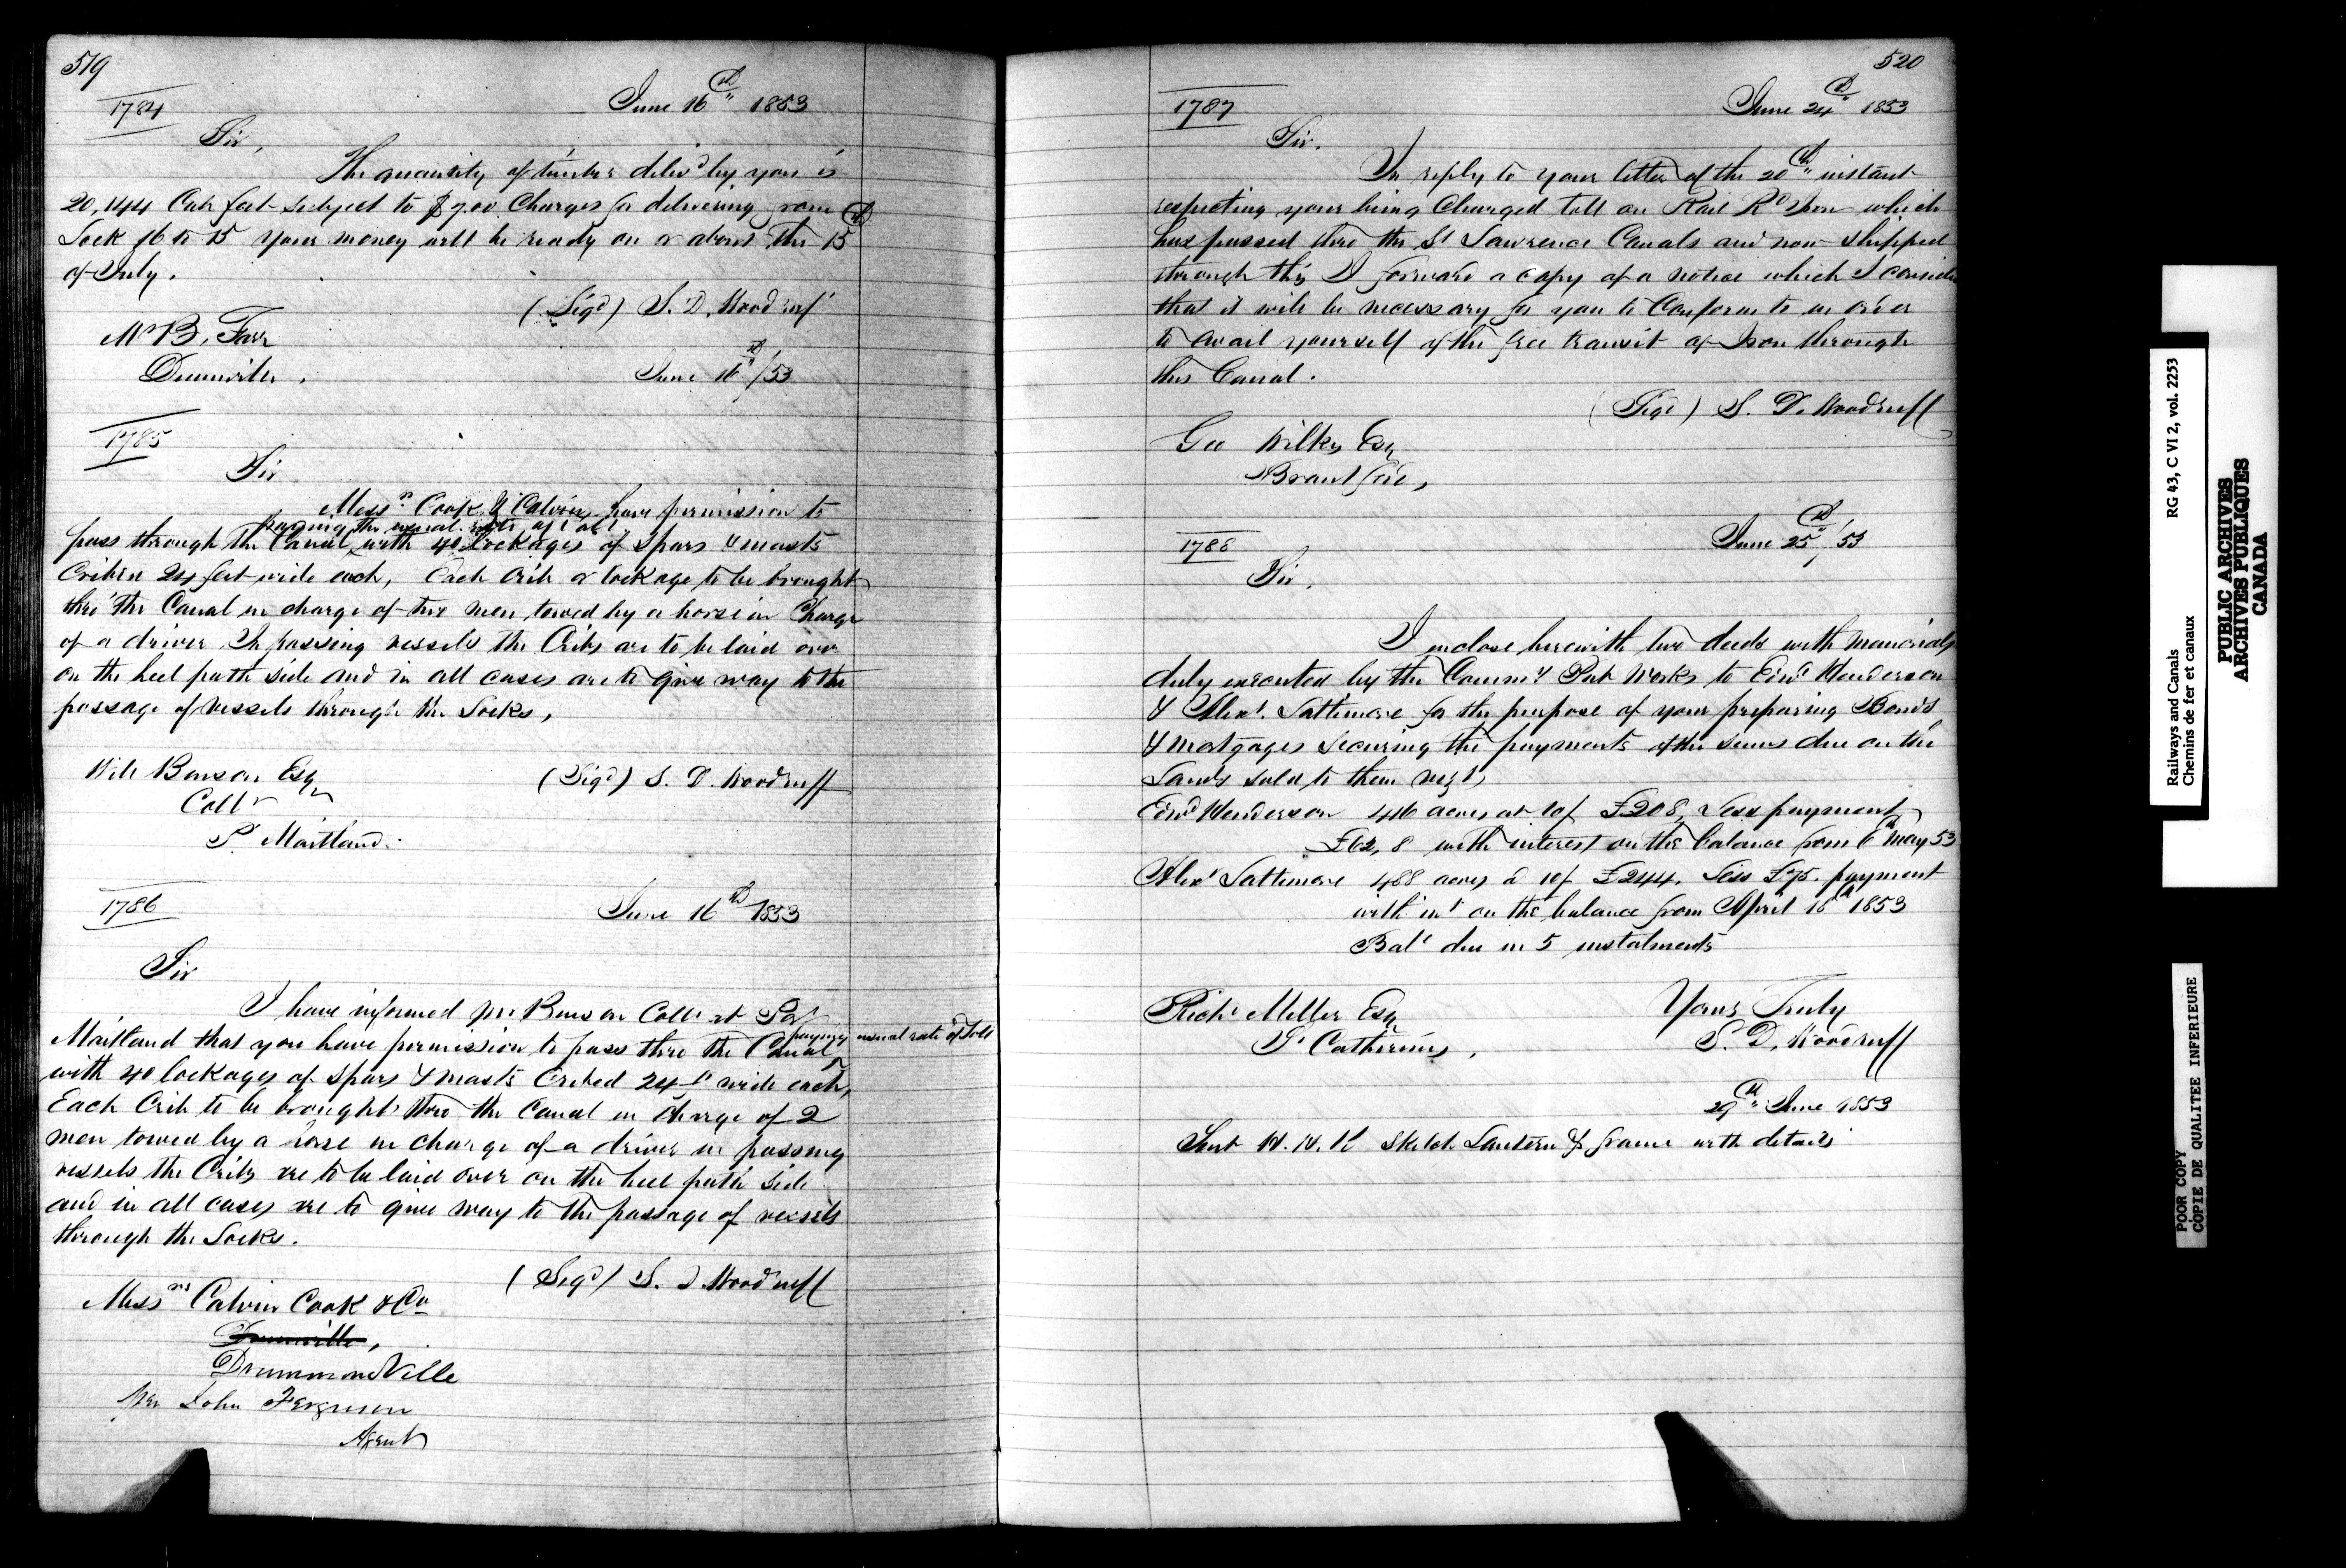 519
1784
June 16th 1853
Sir,
The quantity of timber deliv'd by you is
20,144 Cub feet subject to $7.00 Charges for delivering from
Lock 16 to 15 your money will be ready on or about the 15th
of July.
(Sigd) S. D. Woodruff
Mr B. Farr
Dunnville,
June 16th /53
1785
Sir
Messrs Cook & Calvin have permission to
paying the usual rate of toll
pass through the Canal with 40 lockages of Spars & masts
Crib'd 24 feet wide each, Each Crib or lockage to be brought
thro' the Canal in charge of two men towed by a horse in Charge
of a driver In passing vessels the Cribs are to be laid over
on the heel path side and in all cases are to give way to the
passage of vessels through the Locks,
Will Benson Esq
Collr
Pt Maitland.
(Sigd) S. D. Woodruff
1786
June 16th 1853
Sir
I have informed Mr Benson Collr at Port
paying usual rate of Toll
Maitland that you have permission to pass thro the Canal
with 40 lockages of Spars & masts Cribed 24 ft wide each,
Each Crib to be brought thro the Canal in charge of 2
men towed by a horse in charge of a driver in passing
vessels the Cribs are to be laid over on the heel path side
and in all cases are to give way to the passage of vessels
through the Locks.
(Sigd) S. D. Woodruff
Messrs Calvin Cook & Co
Dunnville,
DrummondVille
Per John Ferguson
Agent
520
1787
June 24th 1853
Sir.
In reply to your letter of the 20th instant
respecting your being Charged toll on Rail Rd Iron which
has passed thro the St Lawrence Canals and now shipped
through this, I forward a copy of a notice which I consider
that it will be necessary for you to Conform to in order
to avail yourself of the free transit of Iron through
this Canal.
(Sigd) S. D. Woodruff
Geo Wilkes Esq
Brantford,
1788
June 25th /53
Sir.
I inclose herewith two deeds with memorials
duly executed by the Commr Pub Works to Edwd Henderson
& Alexr Lattimore for the purpose of your preparing Bonds
& mortgages securing the payments of the sums due on the
Lands sold to them respt
Edwd Henderson 416 acres at 10/ £208, Less payment
£62, 8 with interest on the balance from 6th May 53
Alexr Lattimore 488 acres @ 10/ £244. Less £75. payment
with int on the balance from April 18th 1853
Balc due in 5 instalments
Yours Truly
S. D. Woodruff
Richd Miller Esq
St Catherines,
29th June 1853
Sent sketch Lantern & frame with details
RG 43, C VI 2, vol. 2253
Railways and Canals
Chemins de fer et canaux
PUBLIC ARCHIVES
ARCHIVES PUBLIQUES
CANADA
POOR COPY
COPIE DE QUALITEE INFERIEURE